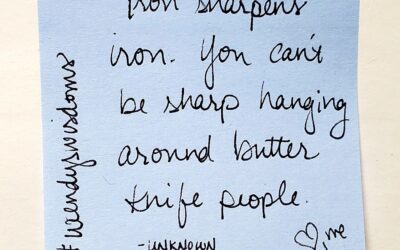 Iron sharpens
iron. You can't
be sharp hanging
around butter
knife people.
-UNKNOWN
♡, me
#wendyswisdoms